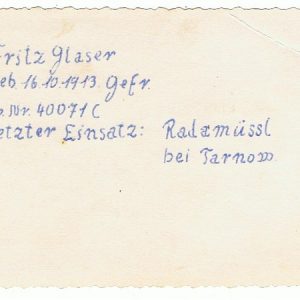 Fritz Glaser
eb. 16.10.1913. Gefr.
p. Nr. 40071 C
etzter Einsatz: Radamüssl
bei Tarnow.